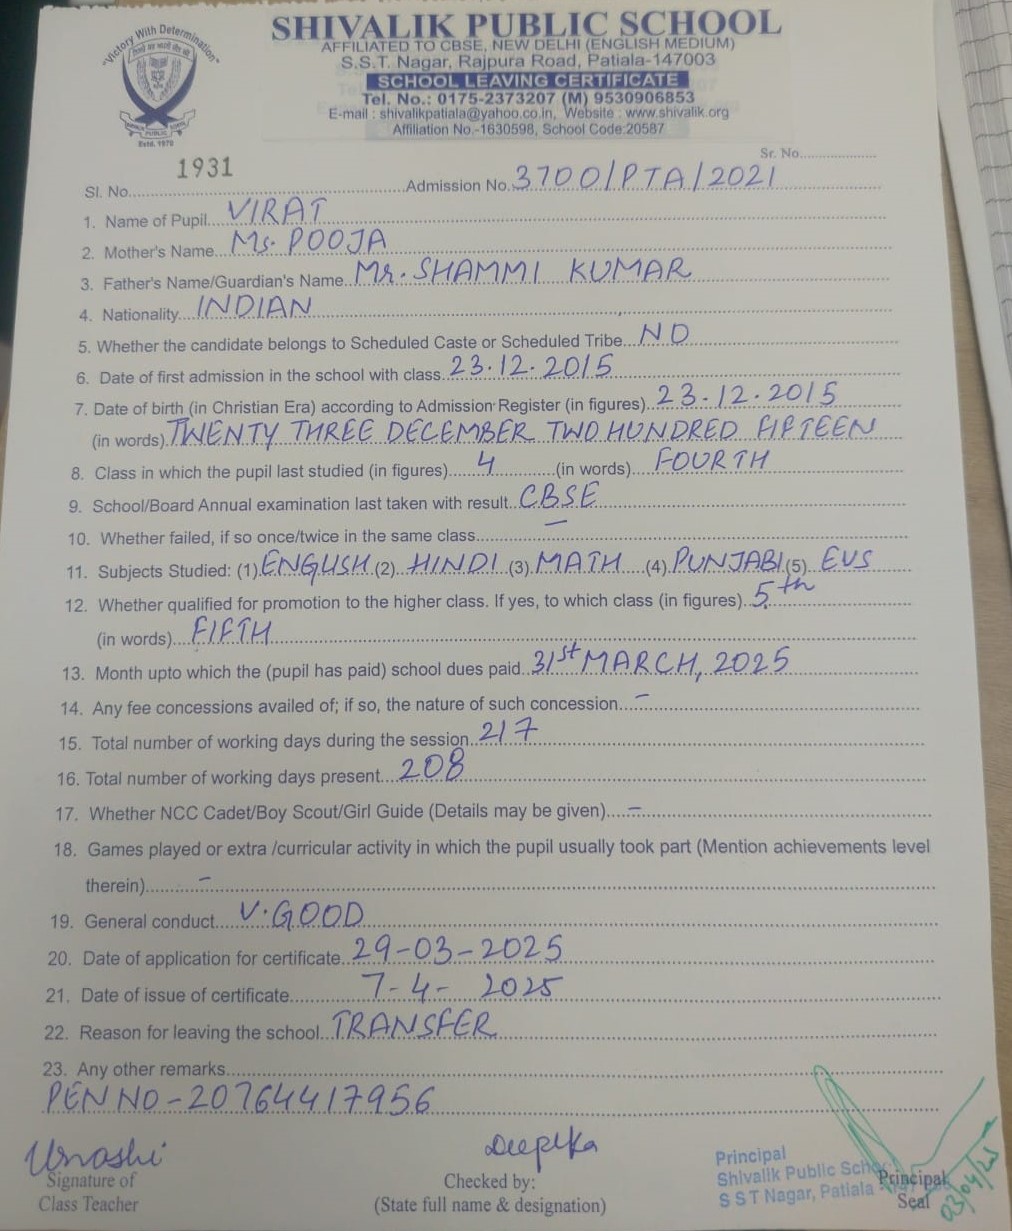 "Victory With Determination"
SHIVALIK PUBLIC SCHOOL
AFFILIATED TO CBSE, NEW DELHI (ENGLISH MEDIUM)
S.S.T. Nagar, Rajpura Road, Patiala-147003
SCHOOL LEAVING CERTIFICATE
Tel. No.: 0175-2373207 (M) 9530906853
E-mail : shivalikpatiala@yahoo.co.in, Website : www.shivalik.org
Affiliation No.-1630598, School Code:20587
PUBLIC
Estd. 1970
Sr. No.
Sl. No. 1931 Admission No. 3700/PTA/2021
1. Name of Pupil VIRAT
2. Mother's Name Ms. POOJA
3. Father's Name/Guardian's Name Mr. SHAMMI KUMAR
4. Nationality INDIAN
5. Whether the candidate belongs to Scheduled Caste or Scheduled Tribe NO
6. Date of first admission in the school with class 23.12.2015
7. Date of birth (in Christian Era) according to Admission Register (in figures) 23.12.2015
(in words) TWENTY THREE DECEMBER TWO HUNDRED FIFTEEN
8. Class in which the pupil last studied (in figures) 4 (in words) FOURTH
9. School/Board Annual examination last taken with result CBSE
10. Whether failed, if so once/twice in the same class —
11. Subjects Studied: (1) ENGLISH (2) HINDI (3) MATH (4) PUNJABI (5) EVS
12. Whether qualified for promotion to the higher class. If yes, to which class (in figures) 5th
(in words) FIFTH
13. Month upto which the (pupil has paid) school dues paid 31st MARCH, 2025
14. Any fee concessions availed of; if so, the nature of such concession –
15. Total number of working days during the session 217
16. Total number of working days present 208
17. Whether NCC Cadet/Boy Scout/Girl Guide (Details may be given) –
18. Games played or extra /curricular activity in which the pupil usually took part (Mention achievements level
therein) –
19. General conduct V.GOOD
20. Date of application for certificate 29-03-2025
21. Date of issue of certificate 7-4-2025
22. Reason for leaving the school TRANSFER
23. Any other remarks
PEN NO - 20764417956
Urvashi
Signature of
Class Teacher
Deepika
Checked by:
(State full name & designation)
Principal
Shivalik Public Sch
S S T Nagar, Patiala
Principal
Seal